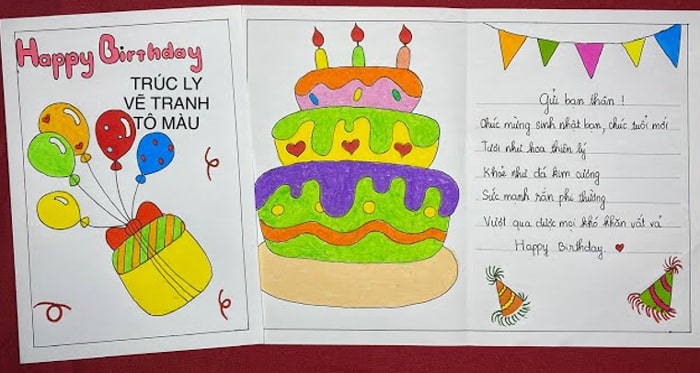 Happy Birthday
TRÚC LY
VẼ TRANH
TÔ MÀU
Gửi bạn thân !
Chúc mừng sinh nhật bạn, chúc tuổi mới
Tươi như hoa thiên lý
Khoẻ như đá kim cương
Sức mạnh rắn phi thường
Vượt qua được mọi khó khăn vất vả
Happy Birthday